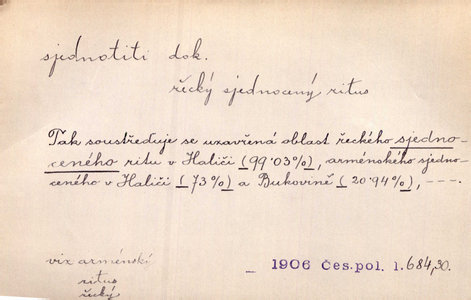 sjednotiti dok.
řecký sjednocený ritus
Tak soustřeďuje se uzavřená oblast řeckého sjedno-
ceného ritu v Haliči (99·03%), arménského sjedno-
ceného v Haliči (73%) a Bukovině (20·94%), ---.
viz arménskí
ritus
řecký
— 1906 Čes.pol. 1.684,30.